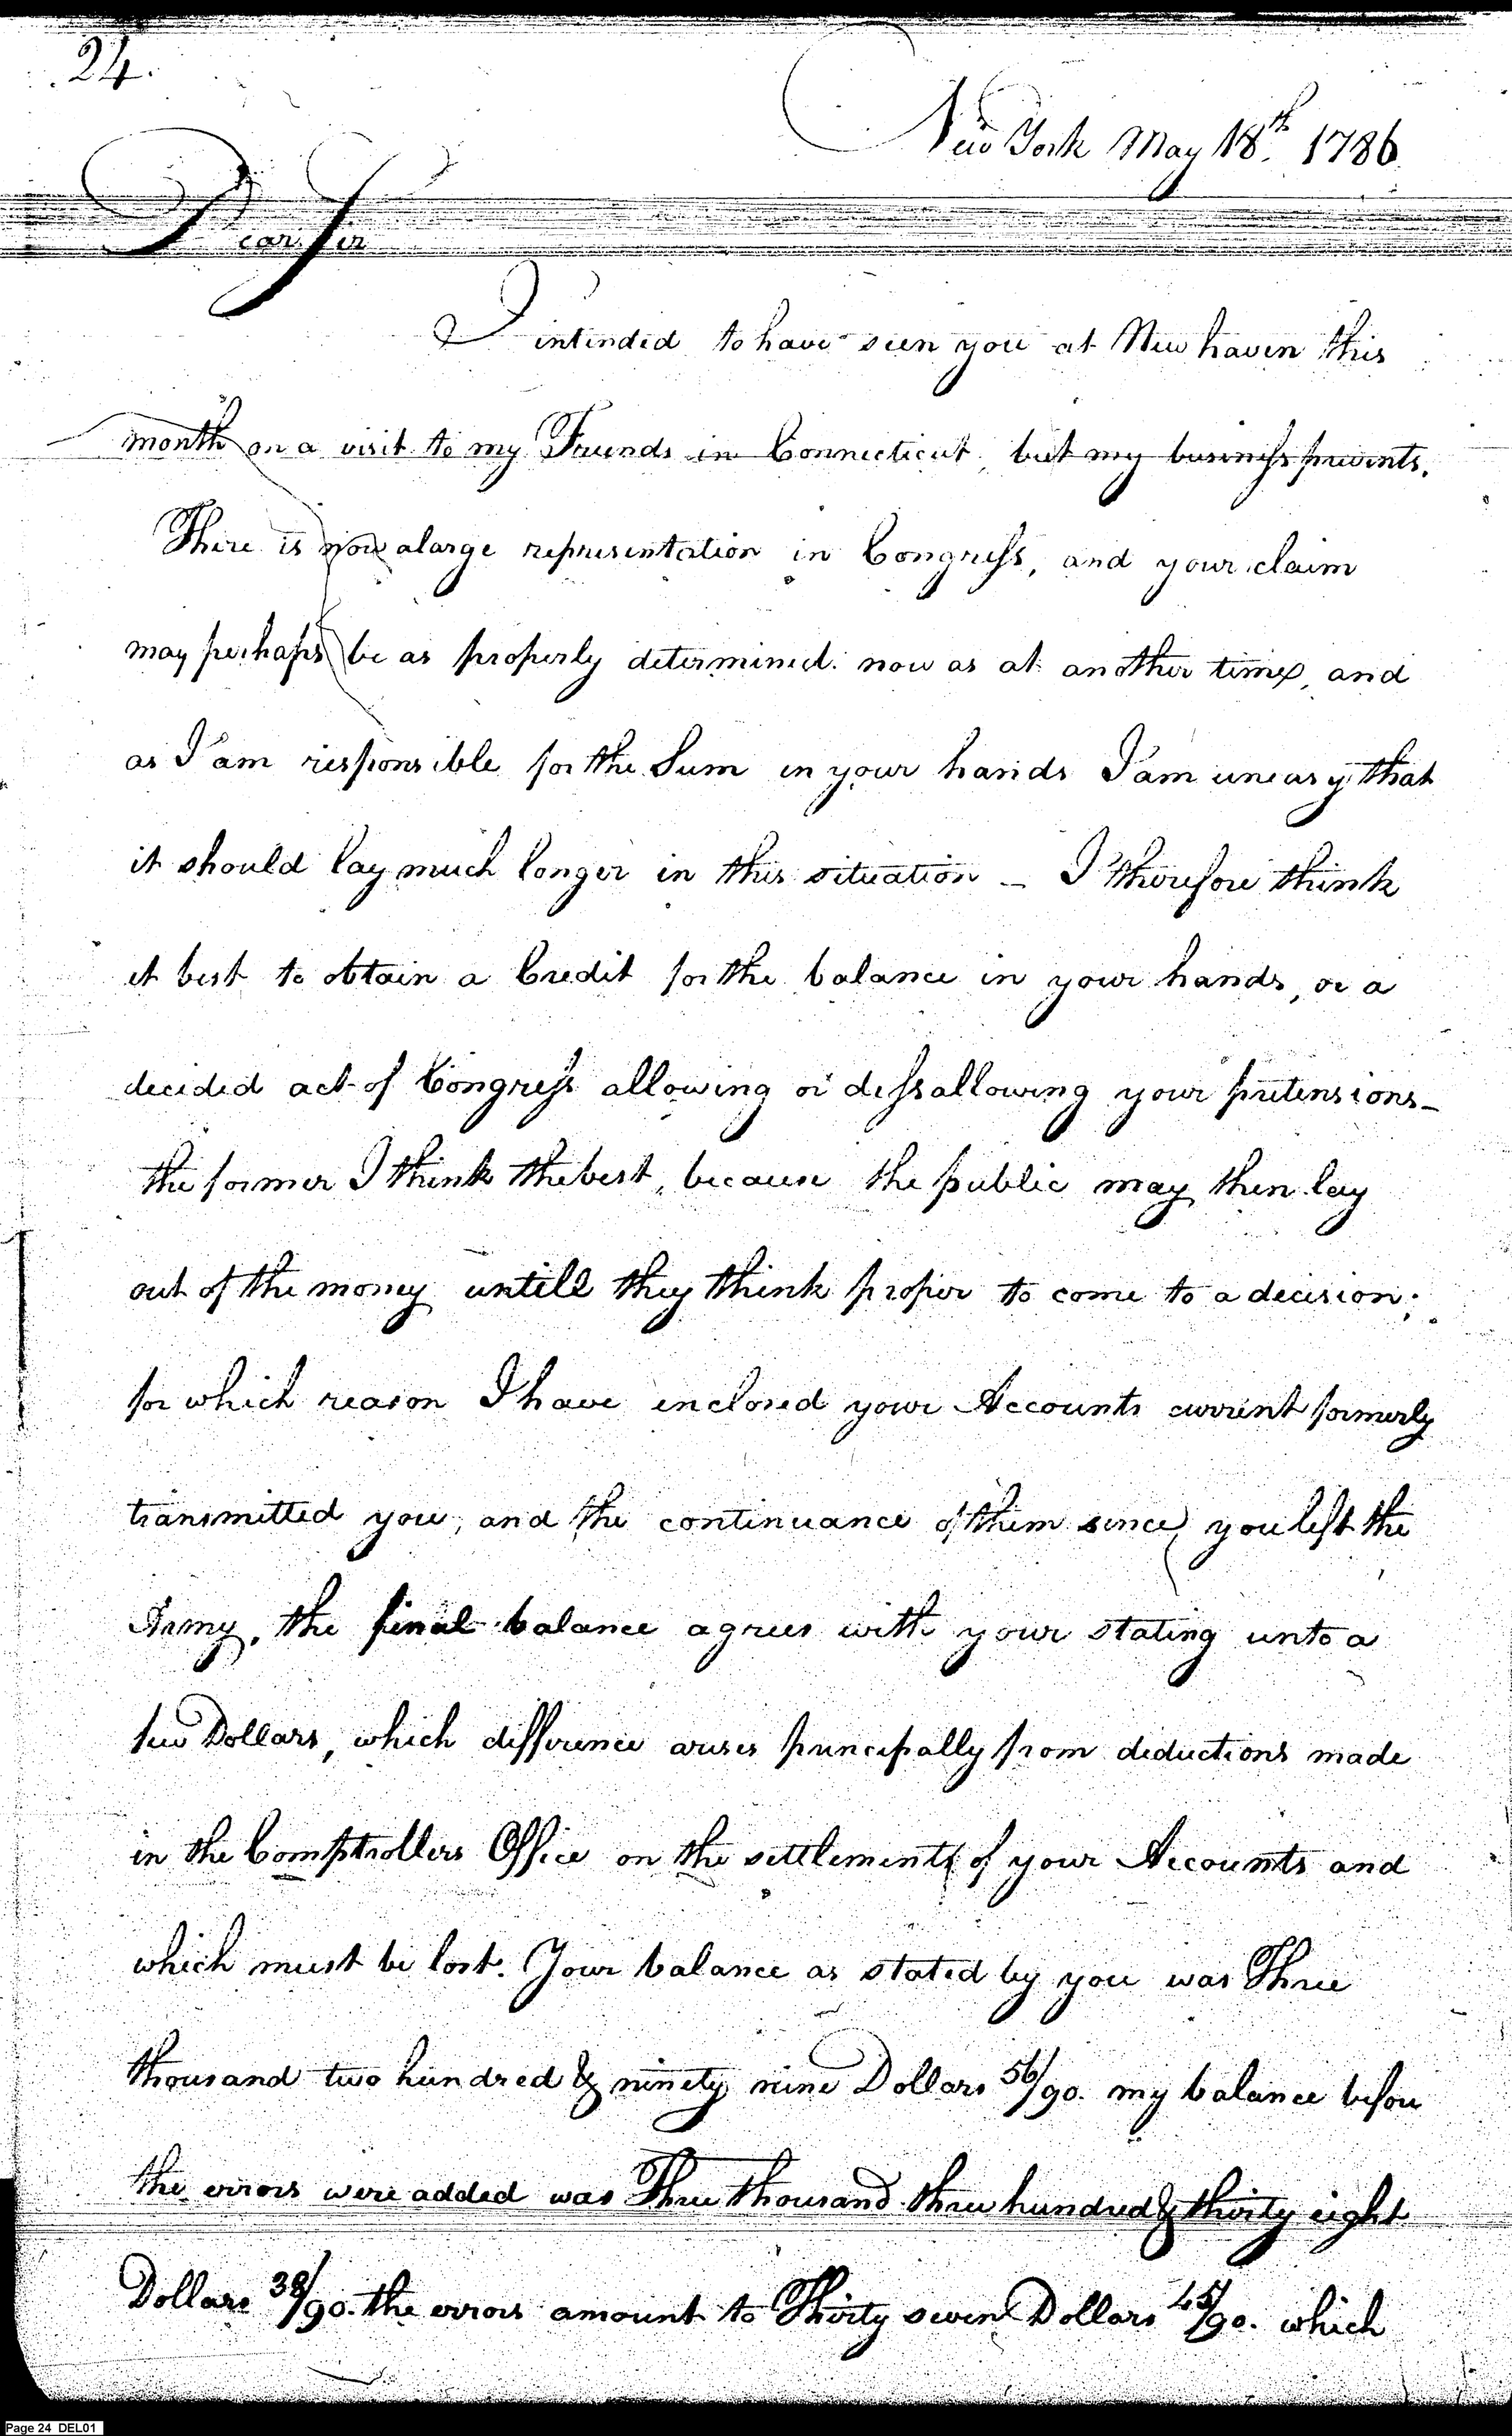 24.
New York May 18th. 1786.
Dear Sir
I intended to have seen you at New haven this
month on a visit to my Friends in Connecticut, but my business prevents.
There is now a large representation in Congress, and your claim
may perhaps be as properly determined now as at another time, and
as I am responsible for the Sum in your hands I am uneasy that
it should lay much longer in this situation – I therefore think
it best to obtain a Credit for the balance in your hands, or a
decided act of Congress allowing or dissallowing your pretensions –
the former I think the best, because the public may then lay
out of the money untill they think proper to come to a decision;
for which reason I have inclosed your Accounts current formerly
transmitted you, and the continuance of them since you left the
Army, the final balance agrees with your stating unto a
few Dollars, which difference arises principally from deductions made
in the Comptrollers Office on the settlements of your Accounts and
which must be lost. Your balance as stated by you was Three
thousand two hundred & ninety nine Dollars 56/90. my balance before
the errors were added was Three thousand three hundred & thirty eight
Dollars 38/90. the errors amount to Thirty seven Dollars 45/90. which
Page 24 DEL01